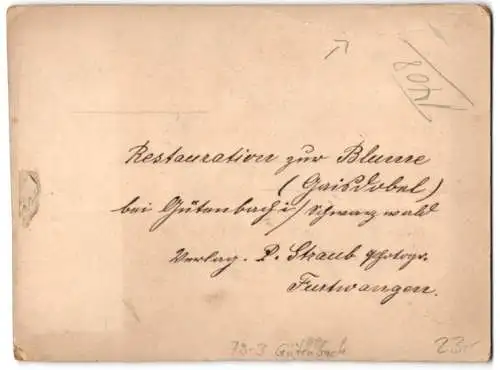 408
Restauration zur Blume
(Gaisdobel)
bei Gütenbach i/ Schwarzwald
Verlag. D. Straub Photogr.
Furtwangen.
Gütenbach
23.-